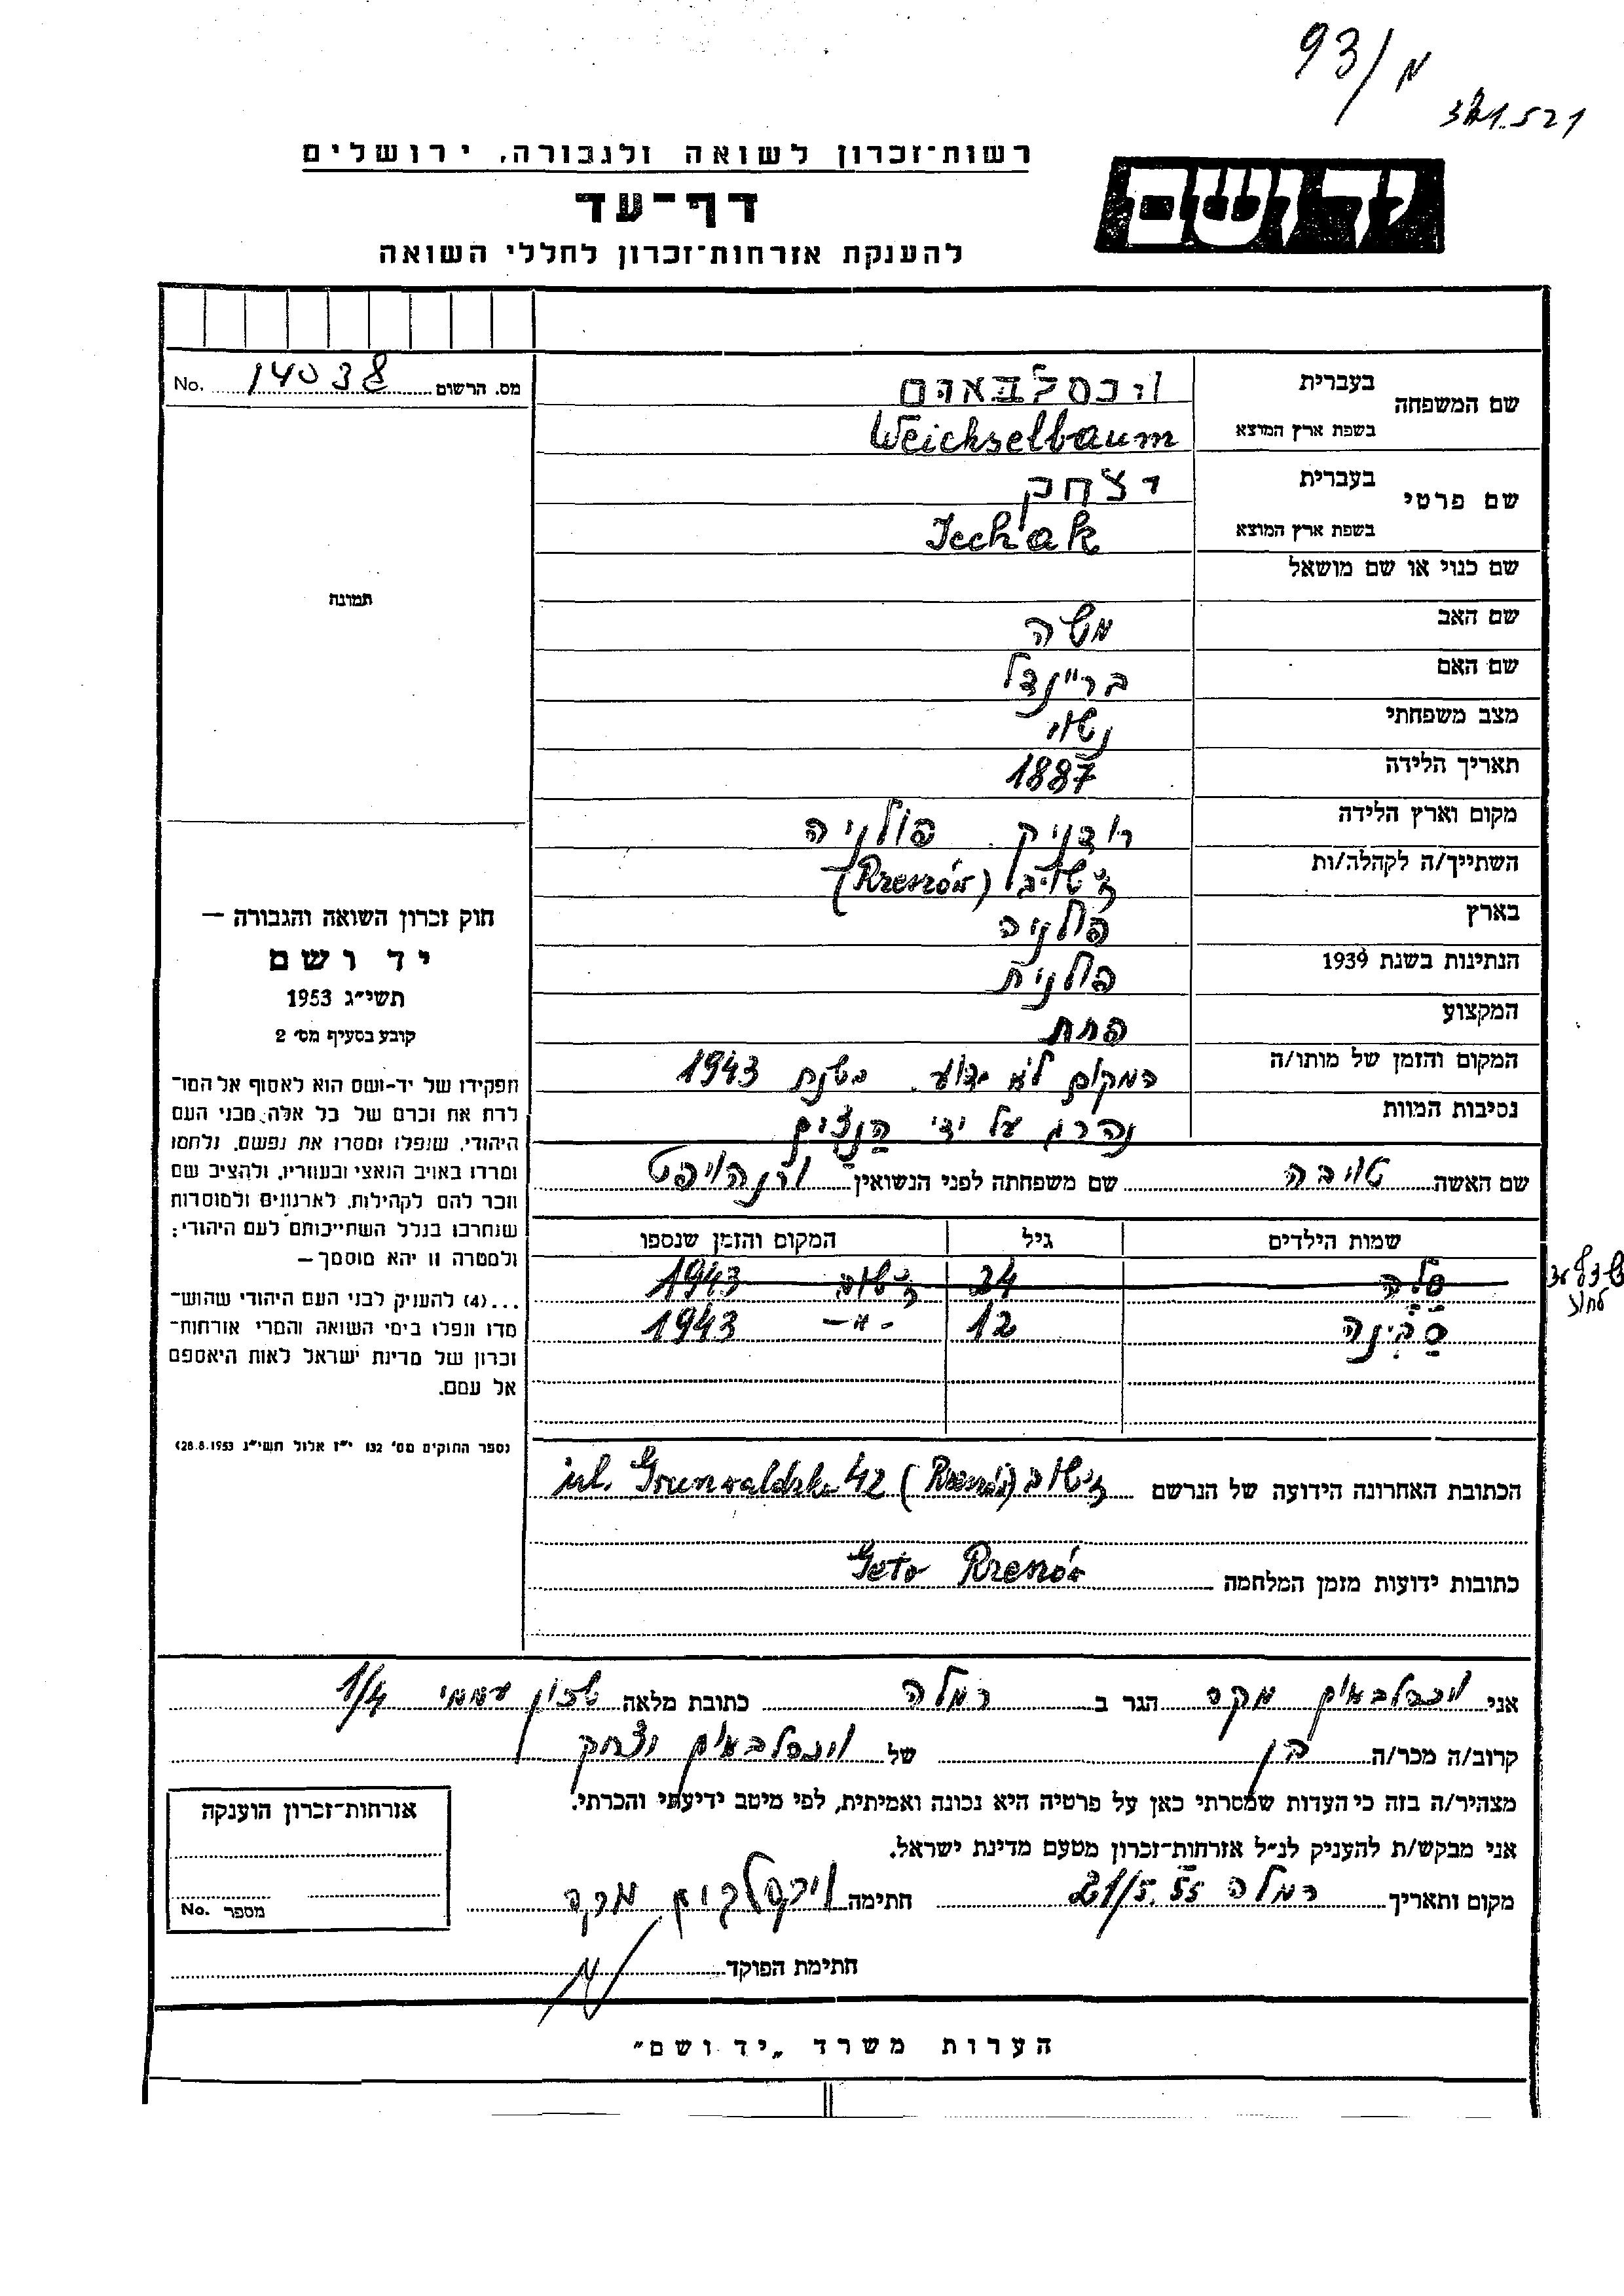 93/מ
רשות-זכרון לשואה ולגבורה, ירושלים
דף-עד
להענקת אזרחות-זכרון לחללי השואה
יד ושם
מס. הרשום 14038 No.
שם המשפחה בעברית וכסלבאום
בשפת ארץ המוצא Weichselbaum
שם פרטי בעברית יצחק
בשפת ארץ המוצא Icchak
שם כנוי או שם מושאל
שם האב משה
שם האם בריינדל
מצב משפחתי נשוי
תאריך הלידה 1887
מקום וארץ הלידה רודניק פולניה
השתייך/ה לקהלה/ות (Rzeszów)
בארץ פולניה
הנתינות בשנת 1939 פולנית
המקצוע פחח
המקום והזמן של מותו/ה המקום לא ידוע. בשנת 1943
נסיבות המוות נהרג על ידי הנצים
שם האשה טויבה שם משפחתה לפני הנשואין
שמות הילדים גיל המקום והזמן שנספו
סלה 24 1943
סבינה 12 -"- 1943
הכתובת האחרונה הידועה של הנרשם (Rzeszów) ul. Grunwaldzka 42
כתובות ידועות מזמן המלחמה Geto Rzeszów
תמונה
חוק זכרון השואה והגבורה —
יד ושם
תשי״ג 1953
קובע בסעיף מס׳ 2
תפקידו של יד-ושם הוא לאסוף אל המו־
לדת את זכרם של כל אלה מבני העם
היהודי, שנפלו ומסרו את נפשם, נלחמו
ומרדו באויב הנאצי ובעוזריו, ולהציב שם
וזכר להם לקהילות, לארגונים ולמוסדות
שנחרבו בגלל השתייכותם לעם היהודי;
ולמטרה זו יהא מוסמך —
...(4) להענין לבני העם היהודי שהוש־
מדו ונפלו בימי השואה והמרי אזרחות־
זכרון של מדינת ישראל לאות היאספם
אל עמם.
(ספר החוקים מס׳ 132 י״ז אלול תשי״ג 28.8.1953)
אני וכסלבאום מקס הגר ב רמלה כתובת מלאה שכון עממי 1/4
קרוב/ה מכר/ה בן של וכסלבאום יצחק
מצהיר/ה בזה כי העדות שמסרתי כאן על פרטיה היא נכונה ואמיתית, לפי מיטב ידיעתי והכרתי.
אני מבקש/ת להעניק לנ״ל אזרחות-זכרון מטעם מדינת ישראל.
מקום ותאריך רמלה 21/5.55 חתימה וכסלבוים מקס
חתימת הפוקד
אזרחות-זכרון הוענקה
מספר No.
הערות משרד „יד ושם״